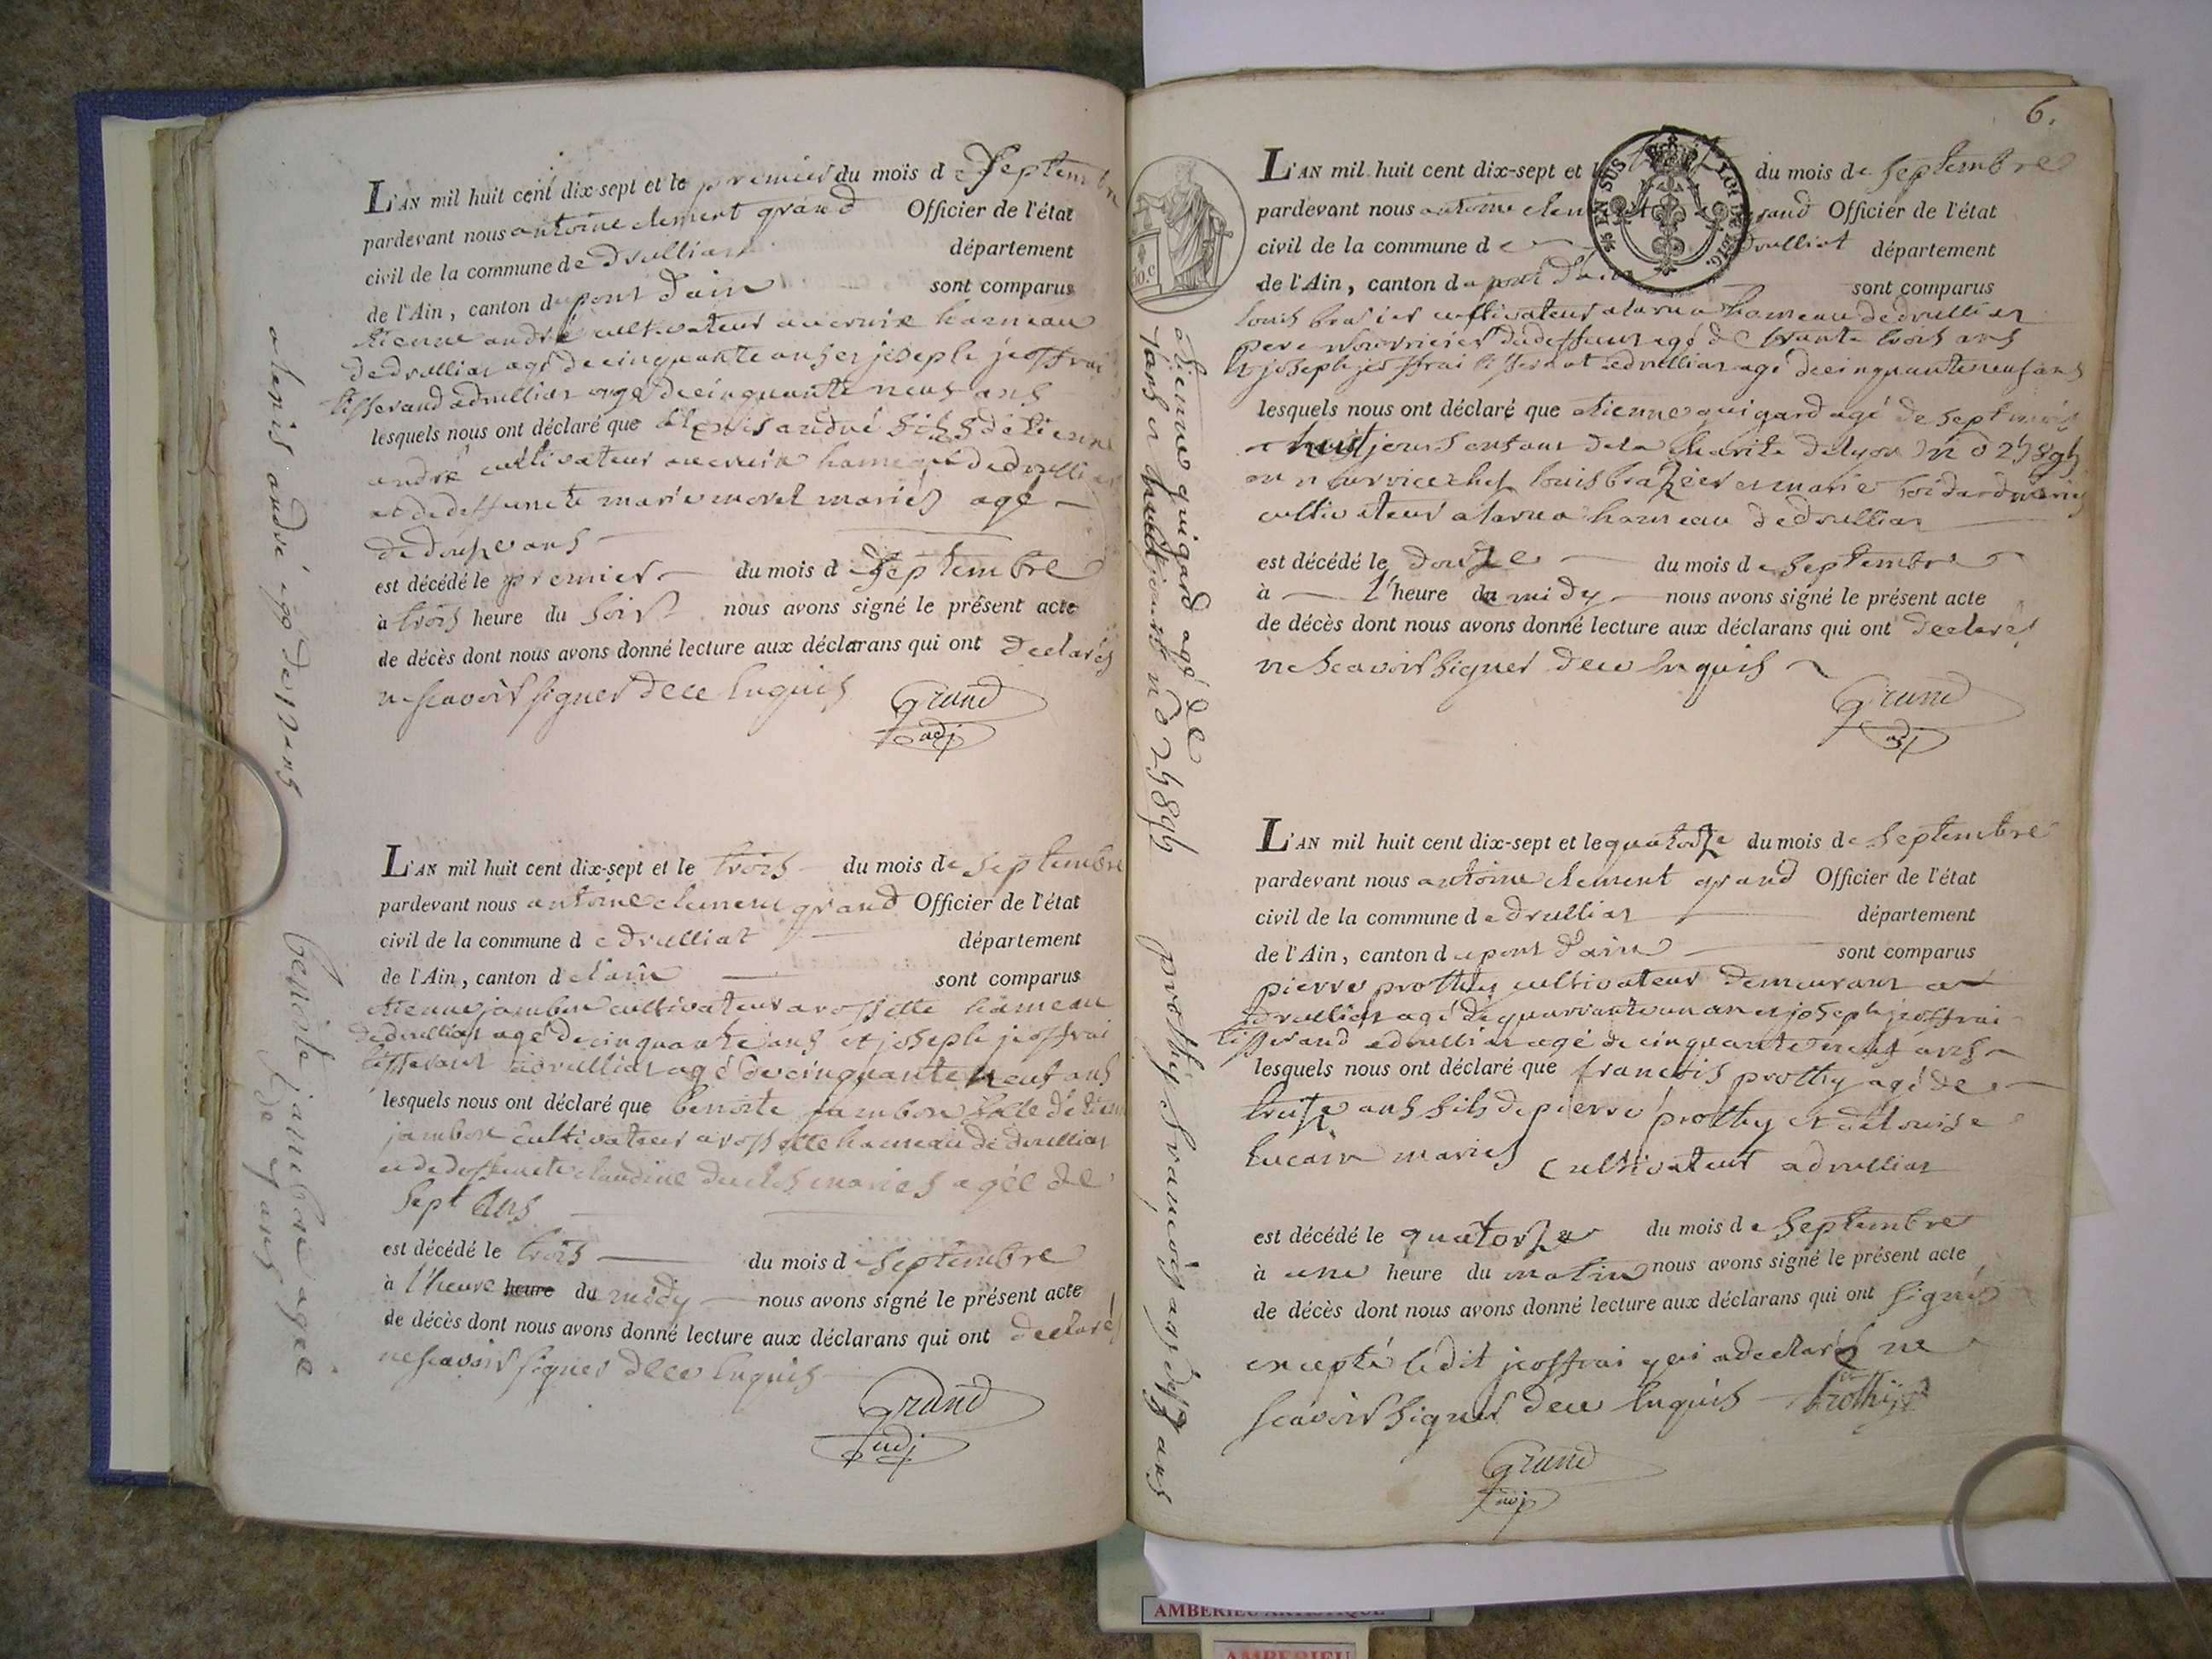 alexis andré agé de 12 ans
L'AN mil huit cent dix-sept et le premier du mois de Septembre
pardevant nous antoine clement grand Officier de l'état
civil de la commune de druilliat département
de l'Ain, canton du pont dain sont comparus
etienne andré cultivateur hameau
de druillia agé de cinquante ans et joseph jeoffrai
tisserand a druillia agé de cinquante neuf ans
lesquels nous ont déclaré que alexis andré fils d'etienne
andré cultivateur hameau de druillia
et de deffuncte marie morel mariés agé
de douze ans
est décédé le premier du mois de Septembre
à trois heure du soir nous avons signé le présent acte
de décès dont nous avons donné lecture aux déclarans qui ont declarés
ne scavoir signer de ce enquis
Grand
adj
benoite jambon agée
de 7 ans
L'AN mil huit cent dix-sept et le trois du mois de septembre
pardevant nous antoine clement grand Officier de l'état
civil de la commune de druilliat département
de l'Ain, canton de sont comparus
etienne jambon cultivateur a rossette hameau
de druillia agé de cinquante ans et joseph jeoffrai
tisserant a druillia agé de cinquante neuf ans
lesquels nous ont déclaré que benoite jambon fille d'etienne
jambon cultivateur a rossette hameau de druillia
et de deffuncte claudine mariés agée de
sept ans
est décédé le trois du mois de septembre
à l'heure heure du midy nous avons signé le présent acte
de décès dont nous avons donné lecture aux déclarans qui ont declarés
ne scavoir signer de ce enquis
Grand
adj
6.
EN SUS LOI DE 1816.
etienne guigard agé de
7 jours no 25895
L'AN mil huit cent dix-sept et le du mois de septembre
pardevant nous antoine clement grand Officier de l'état
civil de la commune de druilliat département
de l'Ain, canton du pont d'ain sont comparus
louis brasier cultivateur a la rua hameau de druillia
pere nourricier du deffunt agé de trante trois ans
et joseph jeoffrai tisserant a druillia agé de cinquante neuf ans
lesquels nous ont déclaré que etienne guigard agé de sept mois
huit jours enfant de la charité de lyon no 25895
en nourrice chez louis brazier et marie mariés
cultivateur a la rua hameau de druillia
est décédé le douze du mois de septembre
à l'heure du midy nous avons signé le présent acte
de décès dont nous avons donné lecture aux déclarans qui ont declarés
ne scavoir signer de ce enquis
Grand
adj
prothy françois ans
L'AN mil huit cent dix-sept et le quatorze du mois de septembre
pardevant nous antoine clement grand Officier de l'état
civil de la commune de druillia département
de l'Ain, canton du pont d'ain sont comparus
pierre prothy cultivateur demeurant a
druillia agé de quarante un an et joseph jeoffrai
tisserand a druillia agé de cinquante neuf ans
lesquels nous ont déclaré que françois prothy agé de
treize ans fils de pierre prothy et de louise
mariés cultivateur a druillia
est décédé le quatorze du mois de septembre
à une heure du matin nous avons signé le présent acte
de décès dont nous avons donné lecture aux déclarans qui ont signés
excepté ledit jeoffrai qui a declaré ne
scavoir signer de ce enquis Prothy
Grand
adj
AMBERIEU ARTISTIQUE
AMBERIEU